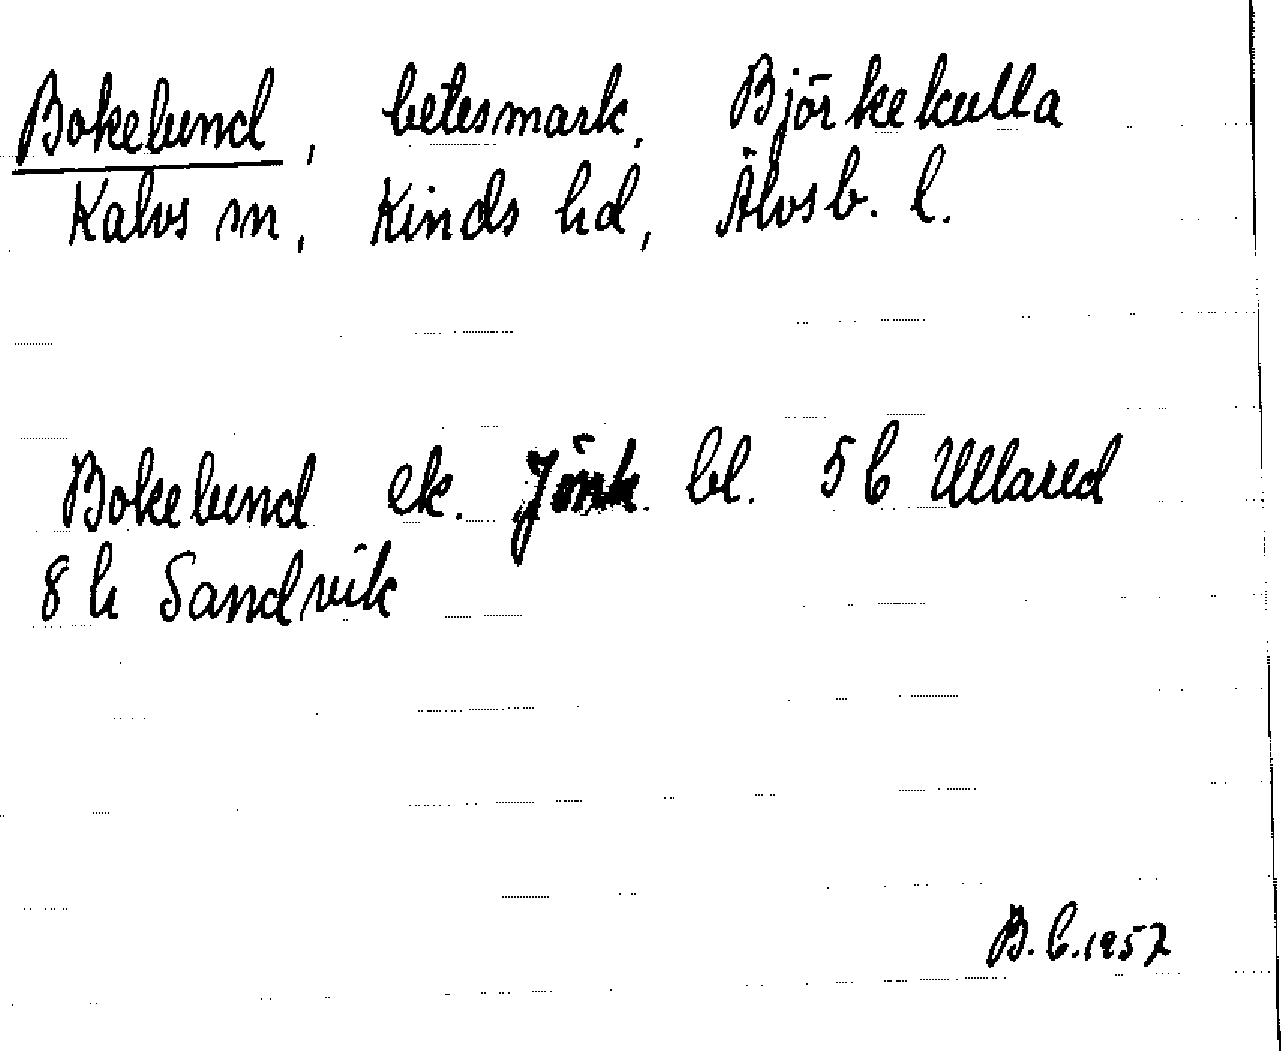 Bokelund, betesmark, Björkekulla
Kalvs sn, Kinds hd, Älvsb. l.
Bokelund ek. Jönk. bl. 5 b Ullared
8 h Sandvik
B.C.1957